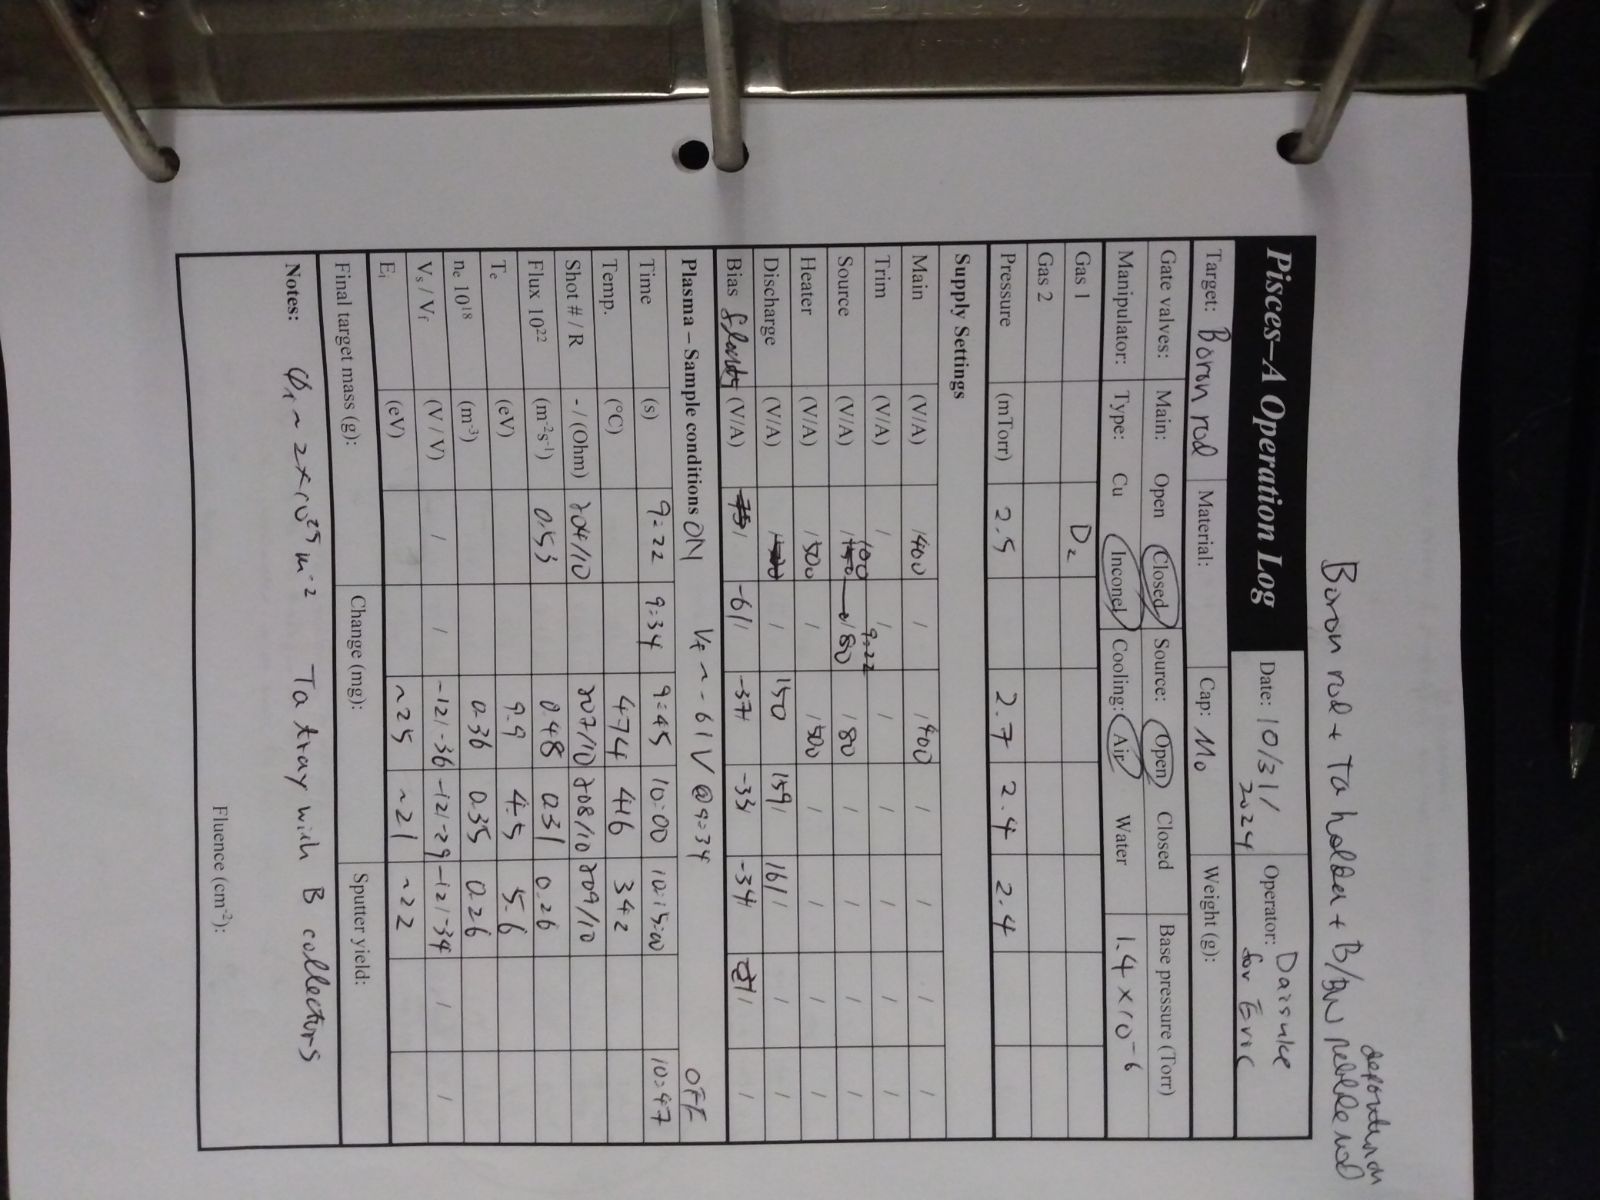 Boron rod + Ta holder + B/BN pebble rod
deposition on
Pisces–A Operation Log Date: 10/31/2024 Operator: Daisuke for Eric
Target: Boron rod Material: Cap: Mo Weight (g):
Gate valves: Main: Open Closed Source: Open Closed Base pressure (Torr)
Manipulator: Type: Cu Inconel Cooling: Air Water 1.4 × 10-6
Gas 1 D2
Gas 2
Pressure (mTorr) 2.5 2.7 2.4 2.4
Supply Settings
Main (V/A) /400 / /400 / / / /
Trim (V/A) / / 9:22 / / / / /
Source (V/A) /100 /150 → /80 /80 / / / /
Heater (V/A) /500 / /500 / / / /
Discharge (V/A) / 150/ 159/ 161/ / /
Bias floating (V/A) 75/ -61/ -37/ -33/ -34/ / /
Plasma – Sample conditions ON Vf ~ -61V @ 9:34 OFF
Time (s) 9:22 9:34 9:45 10:00 10:15:00 10:47
Temp. (°C) 474 416 342
Shot # / R - / (Ohm) 204/10 207/10 208/10 209/10
Flux 10²² (m⁻²s⁻¹) 0.53 0.48 0.31 0.26
Te (eV) 9.9 4.5 5.6
ne 10¹⁸ (m⁻³) 0.36 0.35 0.26
Vs / Vf (V / V) / / -12/-36 -12/-29 -12/-34 / /
Ei (eV) ~25 ~21 ~22
Final target mass (g): Change (mg): Sputter yield:
Notes: φi ~ 2×10²⁵ m⁻² Ta tray with B collectors
Fluence (cm⁻²):